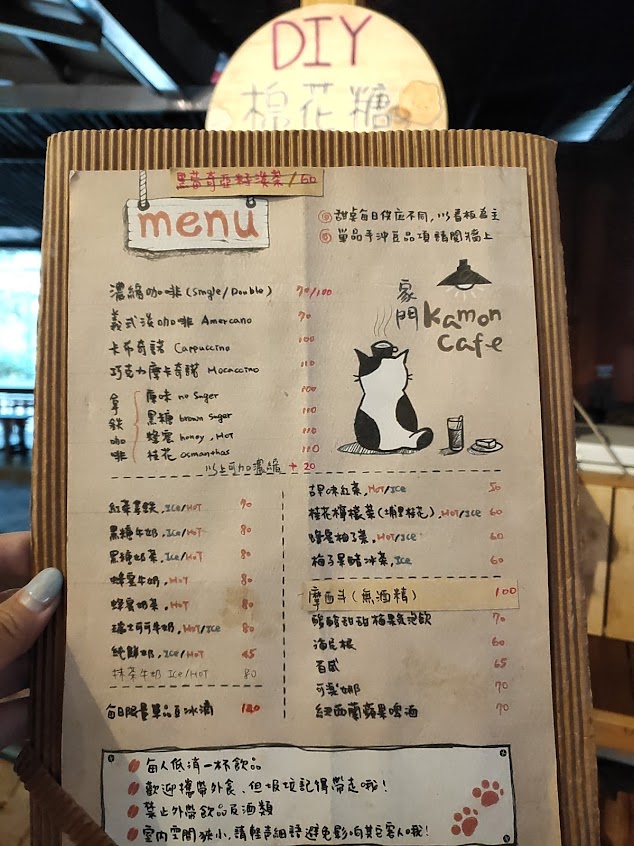 DIY
棉花糖
黑葶奇亞籽淡茶/60
menu
甜桌每日供應不同,以看板為主
單品手沖豆品項請閱牆上
豪門
Kamon
Cafe
濃縮咖啡(Single/Double) 70/100
義式淡咖啡 Amercano 70
卡布奇諾 Cappuccino 100
巧克力摩卡奇諾 Mocaccino 110
拿鐵咖啡
原味 no Suger 100
黑糖 brown Suger 110
蜂蜜 honey,HOT 110
桂花 osmanthas 110
以上可加濃縮 + 20
紅茶拿鐵,Ice/HOT 70
黑糖牛奶,Ice/HOT 80
黑糖奶茶,Ice/HOT 80
蜂蜜牛奶,HOT 80
蜂蜜奶茶,HOT 80
瑞士可可牛奶,HOT/Ice 80
純鮮奶,Ice/HOT 45
抹茶牛奶 Ice/HOT 80
每日限量單品豆冰滴
古早味紅茶,HOT/Ice 50
桂花檸檬茶(埔里桂花),HOT/Ice 60
蜂蜜柚子茶,HOT/Ice 60
梅子果醋冰茶,Ice 60
摩西斗(無酒精) 100
醋醋甜甜梅果氣泡飲 70
海尼根 60
百威 65
可樂娜 70
紐西蘭蘋果啤酒 70
每人低消一杯飲品
歡迎攜帶外食,但垃圾記得帶走哦!
禁止外帶飲品及酒類
室內空間狹小,請輕聲細語避免影響其它客人哦!